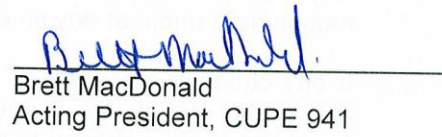 Brett MacDonald
Brett MacDonald
Acting President, CUPE 941